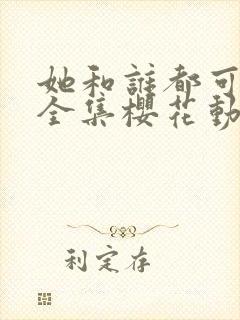 她和誰都可
全集櫻花動
利定存